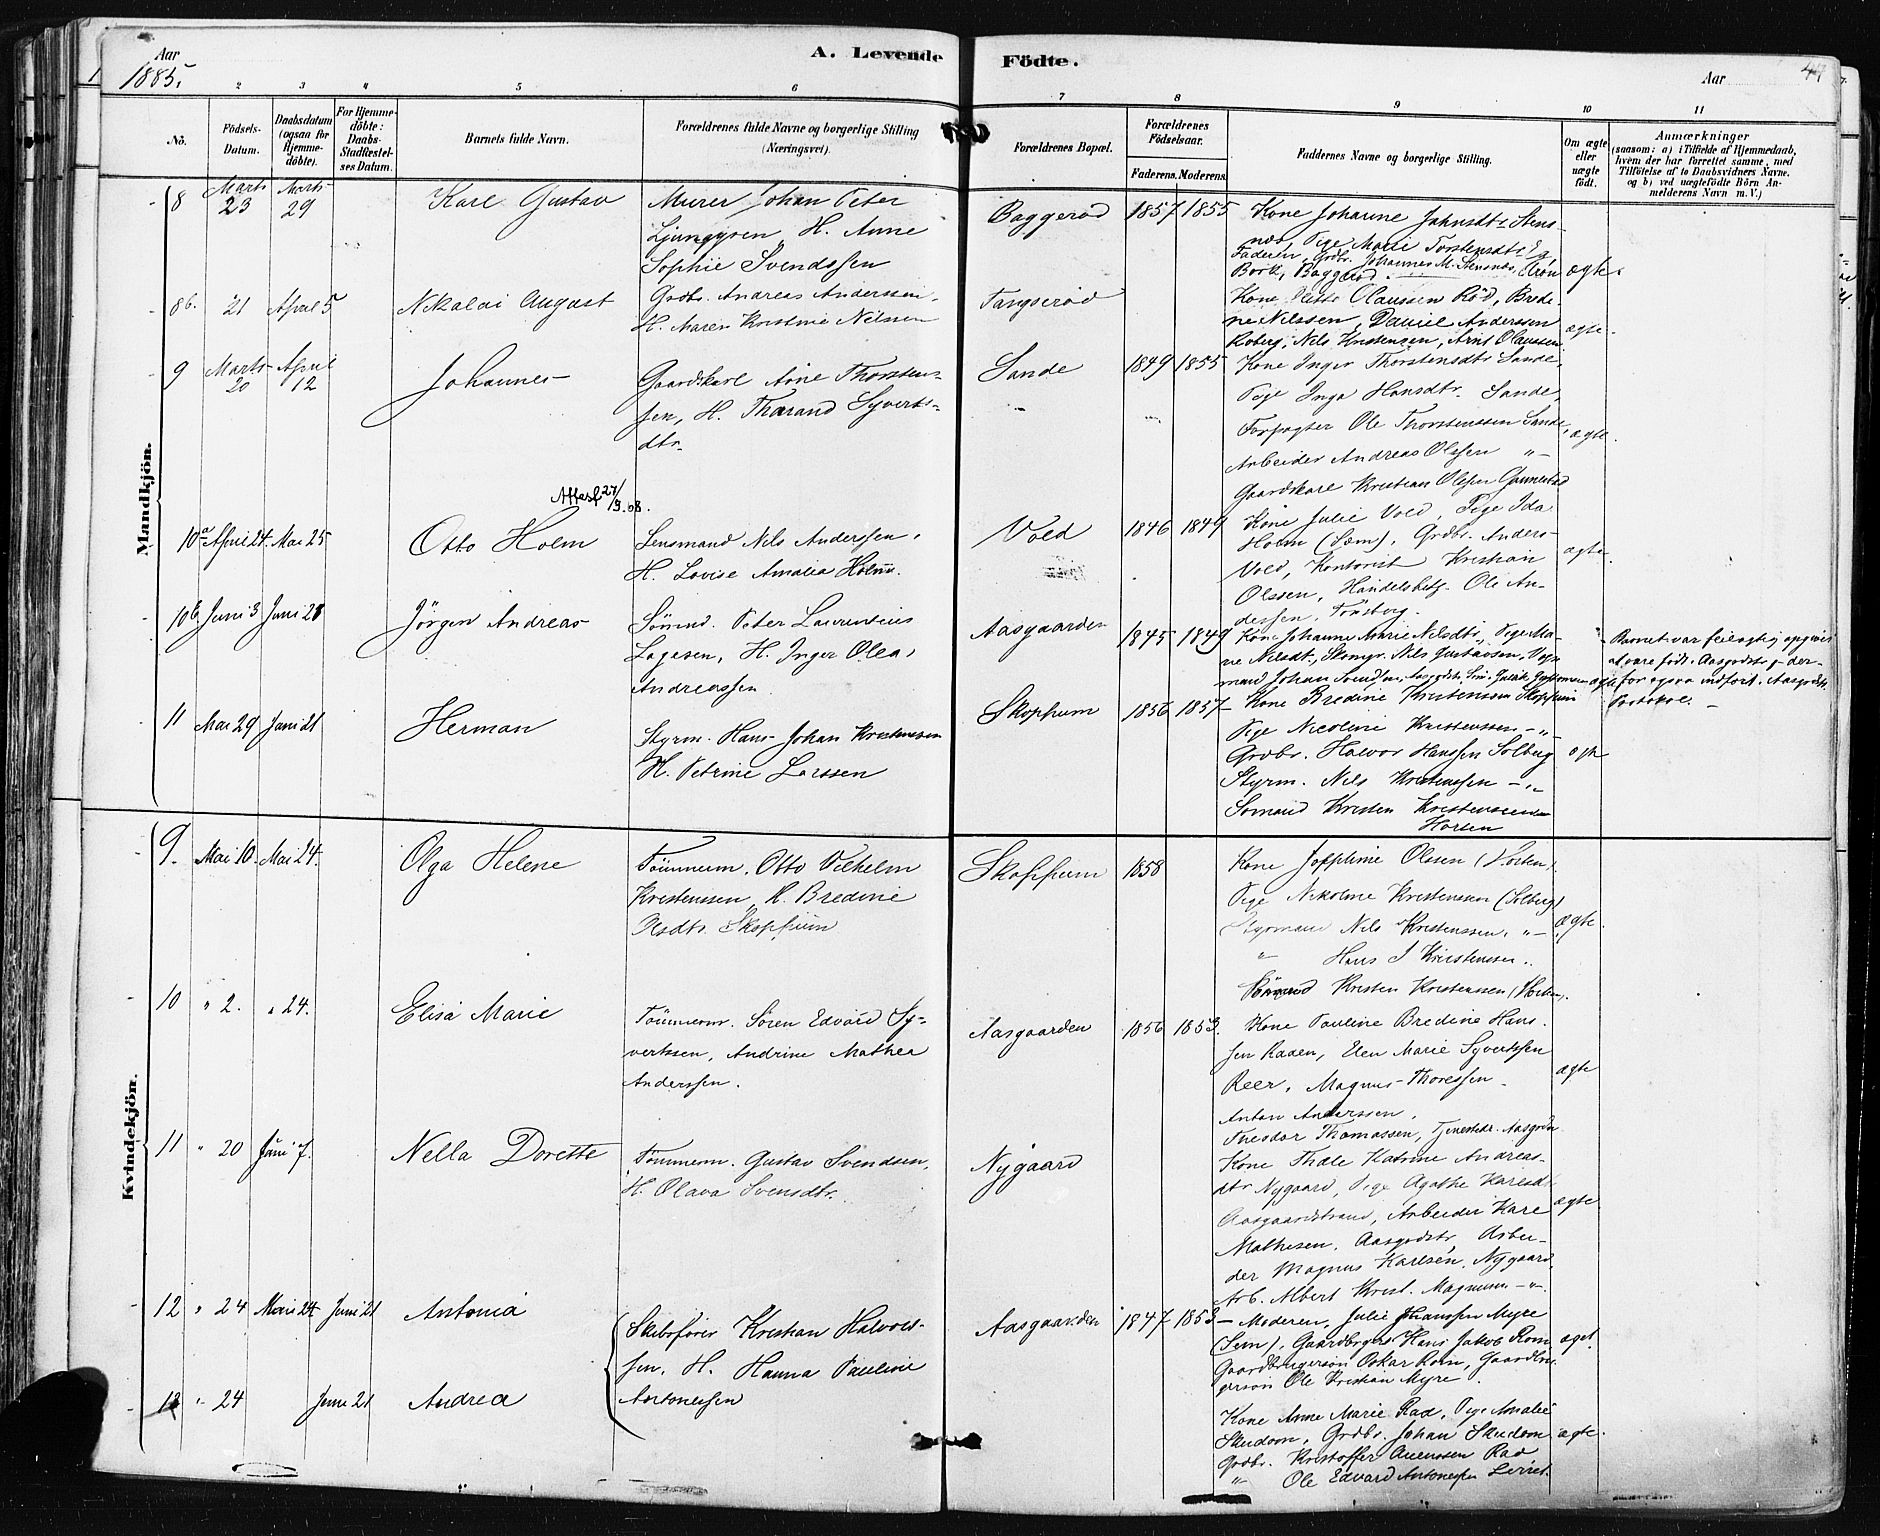 Aar
1885.
A. Levende Födte.
Aar
47
2 3 4 5 6 7 8 9 10 11
No.
Födsels-Datum.
Daabsdatum (ogsaa for Hjemme-döbte).
For Hjemme-döbte: Daabs-Stadfæstel-ses Datum.
Barnets fulde Navn.
Forældrenes fulde Navne og borgerlige Stilling (Næringsvei).
Forældrenes Bopæl.
Forældrenes Födselsaar.
Faderens. Moderens.
Faddernes Navne og borgerlige Stilling.
Om ægte eller uægte födt.
Anmærkninger
(saasom: a) i Tilfælde af Hjemmedaab, hvem der har forrettet samme, med Tilföielse af to Daabsvidners Navne, og b) ved uægtefödte Börn An-melderens Navn m.V.)
Mandkjön.
8 Marts 23 Marts 29 Karl Gustav
Murer Johan Peter
H. Anne
Sophie Svendssen
Baggerød 1857 1855
Kone Johanne Johnsdtr Stens-
Pige Marie Torstensdtr
Faderen, Grdbr. Johannes M. Stensnes,
Baggerød. ægte.
8b. 21 April 5 Nikolai August
Grdbr. Andreas Anderssen.
H. Maren Kristine Nilssen
Tangserød
Kone Olaussen Rød, Bredi-
ne Nilssen, Daniel Anderssen
Roberg, Nils Kristensen, Arnt Olaussen
ægte.
9 Marts 20 April 12 Johannes
Gaardskarl Arne Thorsten-
sen, H. Tharand Syverts-
dtr.
Sande 1849 1855
Kone Inger Thorstensdtr Sande,
Pige Inga Hansdtr. Sande,
Forpagter Ole Thorstenssen Sande,
Arbeider Andreas Olssen "-
Gaardskarl Kristian Olssen Gannestad
ægte.
Attest 27/3.08.
10a April 24. Mai 25 Otto Holm
Lensmand Nils Anderssen,
H. Lovise Amalia Holm.
Vold 1846 1849
Kone Julie Vold, Pige Ida
Holm (Sem), Grdbr. Anders
Vold, Kontorist Kristian
Olssen, Handelsbetj. Ole An-
dersen, Tönsberg.
ægte.
10b Juni 3 Juni 21 Jörgen Andreas
Sömd. Peter Laurentius
Lagesen, H. Inger Olea
Andreassen
Aasgaarden 1845 1849
Kone Johanne Marie Nilsdtr, Pige Ma-
ne Nilsdt., Skomgr. Nils Gustavsen, Vogn-
mand Johan Svendsen,
ægte
Barnet var feilagtig opgivet
at være födt i Aasgdstr, der-
for ogsaa indfört i Aasgdstr.
Protokol. -
11 Mai 29 Juni 21 Herman
Styrm. Hans Johan Kristenssen
H. Petrine Larssen
Skoppum 1856 1857
Kone Bredine Kristenssen Skoppum
Pige Nicoline Kristenssen -"-
Grdbr. Halvor Hanssen Solberg
Styrm. Nils Kristenssen -"-
Sömand Kristen Kristenssen
Horten
ægte
Kvindekjön.
9. Mai 10. Mai 24. Olga Helene
Tömmerm. Otto Vilhelm
Kristenssen, H. Bredine
Skoppum
Skoppum 1858
Kone Josephine Olssen (Horten).
Pige Nikoline Kristenssen (Solberg)
Styrmand Nils Kristenssen. "-
" Hans J Kristenssen "
Sömand Kristen Kristenssen (Horten).
ægte.
10 " 2. " 24. Elisa Marie
Tömmerm. Sören Edvard Sy-
vertssen, Andrine Mathea
Anderssen.
Aasgaarden 1856 1853.
Kone Pauline Bredine Hans-
sen Raaen, Elen Marie Syvertssen
Reer, Magnus Thoressen.
Anton Anderssen.
Theodor Thomassen, Tjenestedr. Aasgrdn
ægte
11 " 20 Juni 7. Nella Dorette
Tömmerm. Gustav Svendsen,
H. Olava Svensdtr.
Nygaard
Kone Thale Katrine Andreas-
dtr Nygaard, Pige Agathe Karlsd.
Aasgaardstrand, Arbeider Karl
Mathisen. Aasgdstr, Arbei-
der Magnus Karlsén, Nygaard,
Arb. Albert Krist. Magnussen -"-
ægte.
12 " 24 Mai 24 Juni 21 Antonia
Skibsförer Kristian Halvors-
sen, H. Hanna Pauline
Antonessen
Aasgaarden 1847 1853
Moderen, Julie Hanssen Myre
(Sem), Gaardbruger Hans Jakob Rom
Gaardbrugersön Oskar Rom, Gaardbru-
gersön Ole Kristian Myre.
ægte.
13 " 24 Juni 21 Andrea
Kone Anne Marie Rad, Pige Amalie
Skudom, Grdbr. Johan Skudom
Grdbr. Kristoffer Rad
" Ole Edvard Antonessen
ægte.